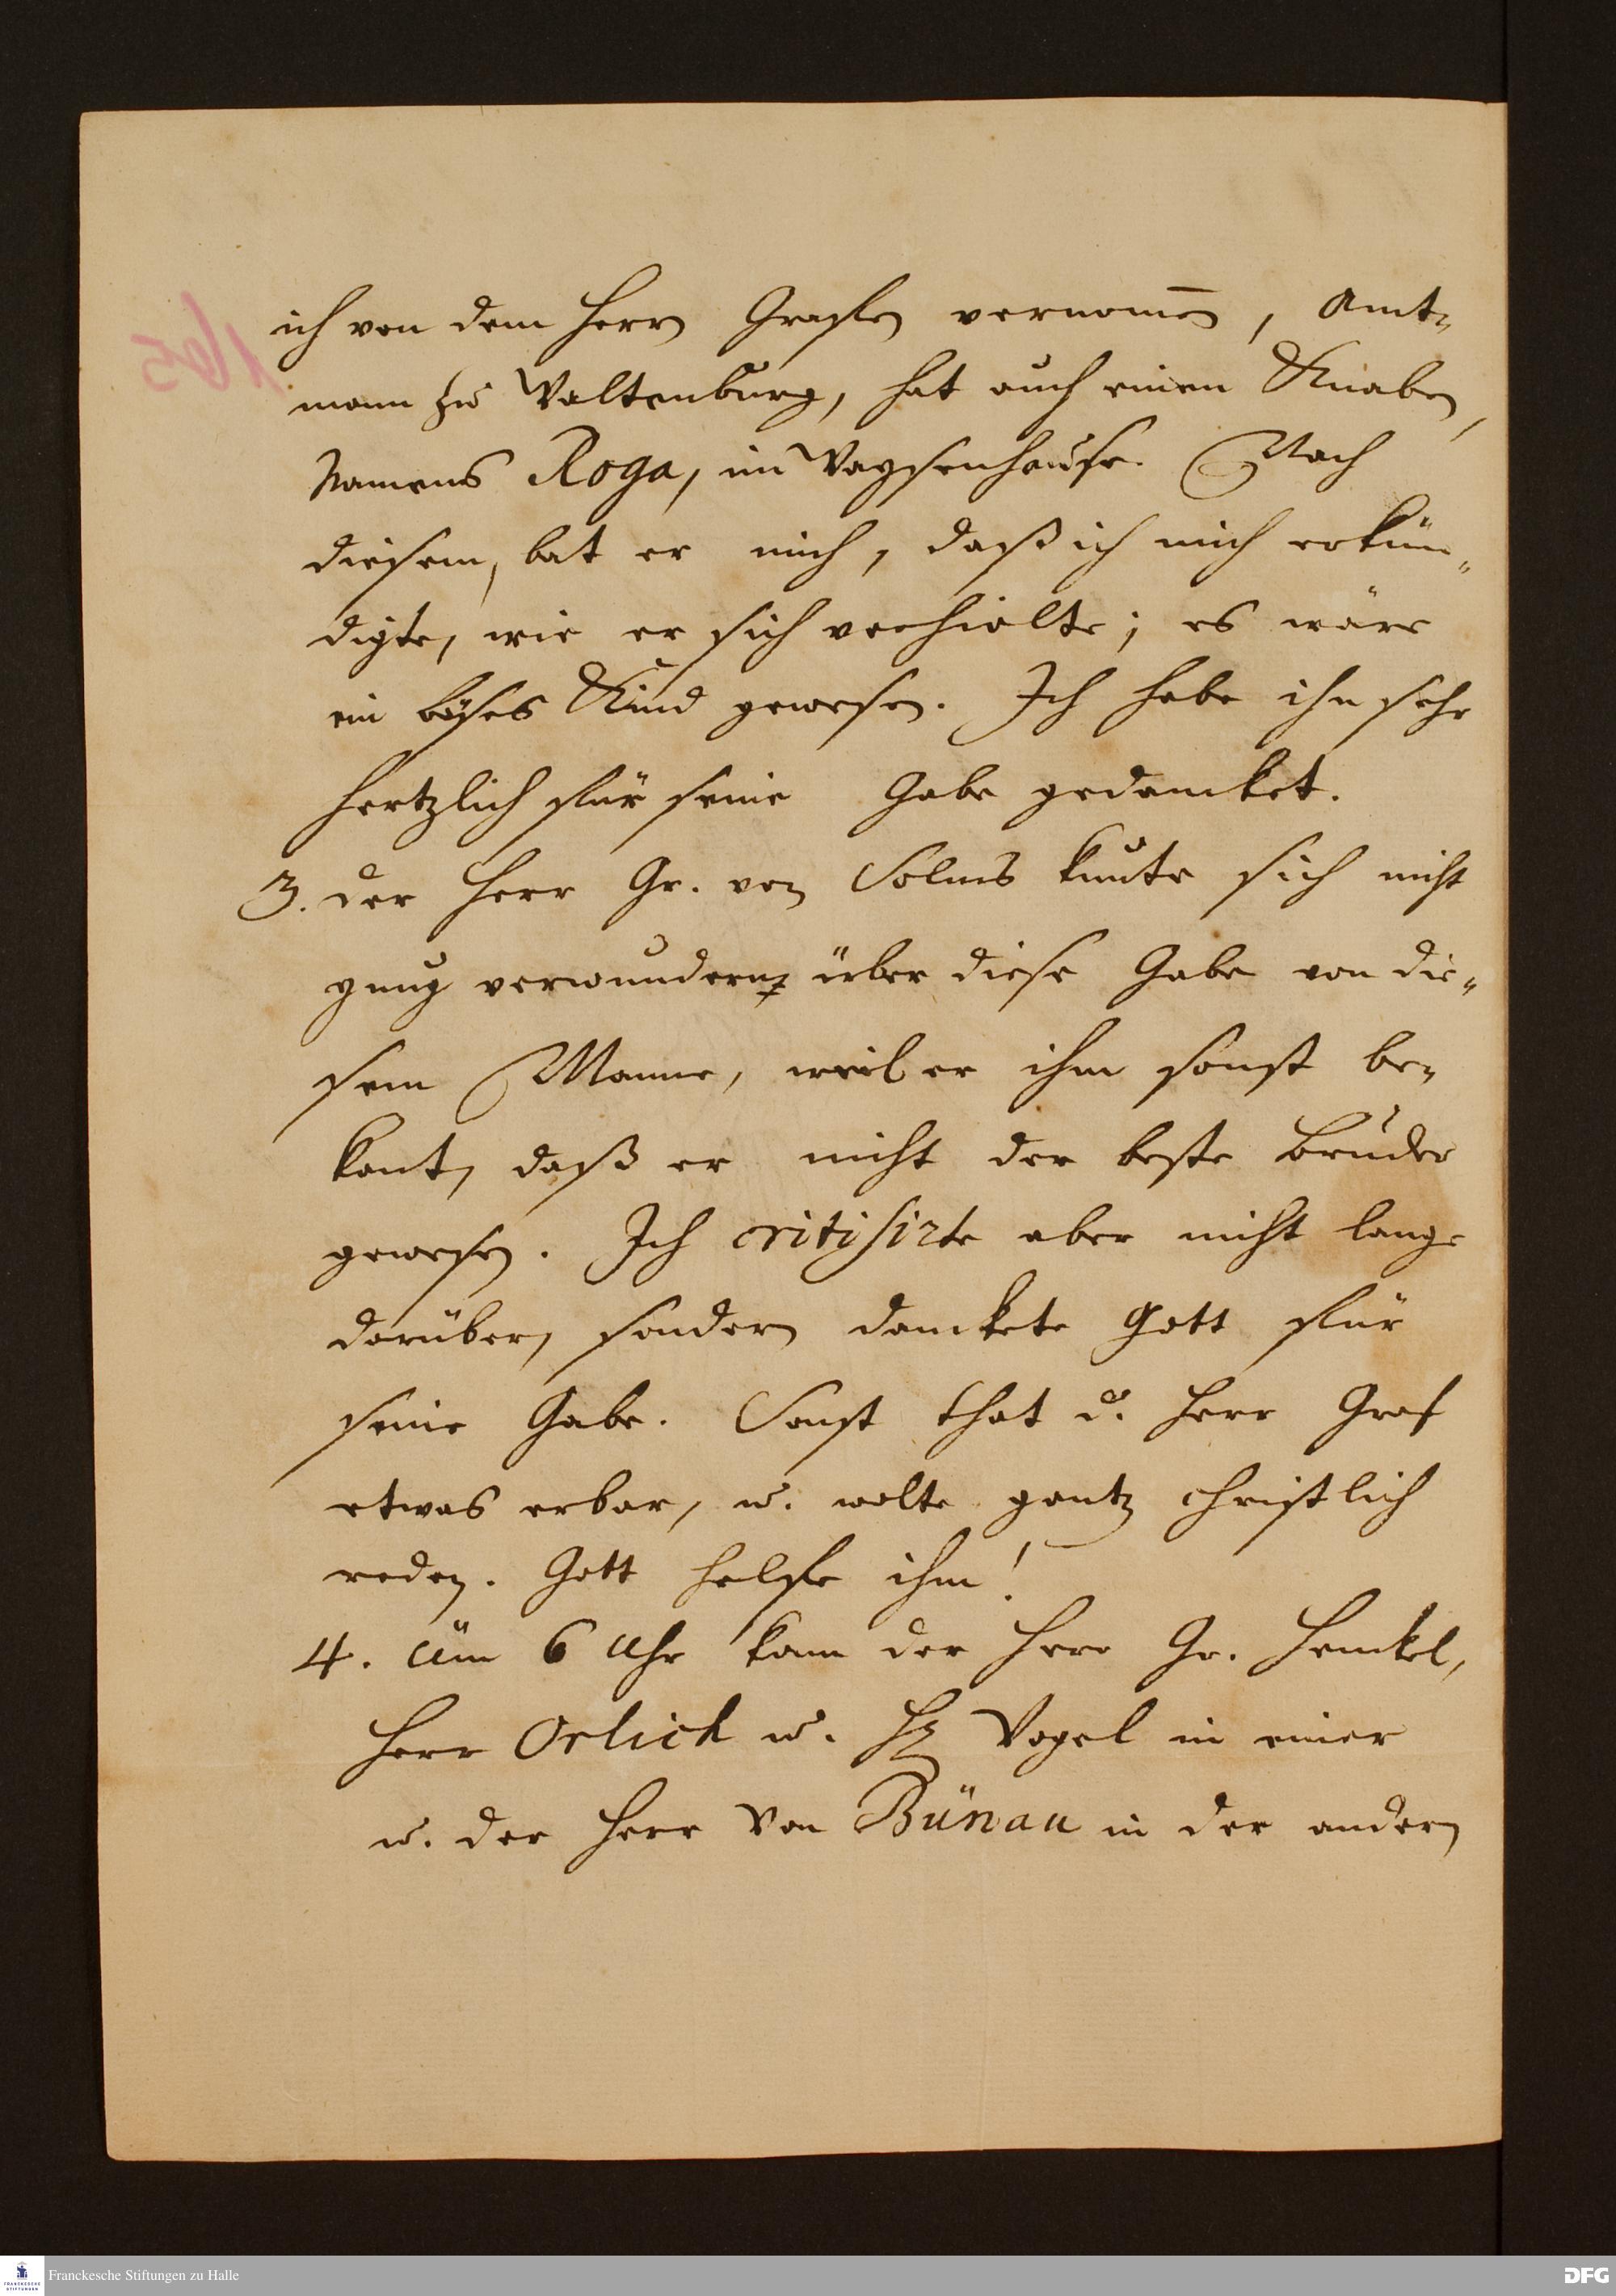 ich von dem Herrn Graffen vernom̄en, Amt-
mann zu Waltenburg, hat auch einen Knaben,
Namens Roga, im Waysenhause. Nach
diesem, bat er mich, daß ich mich erkün-
digte, wie er sich verhielte; es wäre
ein böses Kind gewesen. Ich habe ihn sehr
hertzlich für seine Gabe gedancket.
3. der Herr Gr. von Solms kunte sich nicht
gnug verwundern über diese Gabe von die-
sem Manne, weil er ihm sonst be-
kant, daß er nicht der beste Bruder
gewesen. Ich critisirte aber nicht lange
darüber, sondern danckete Gott für
seine Gabe. Sonst that d. Herr Graf
etwas erbar, u. wolte gantz christlich
reden. Gott helffe ihm!
4. Um 6 Uhr kam der Herr Gr. Henckel,
Herr Orlich u. H. Vogel in einer
u. der Herr von Bünau in der andern
165
Franckesche Stiftungen zu Halle
DFG